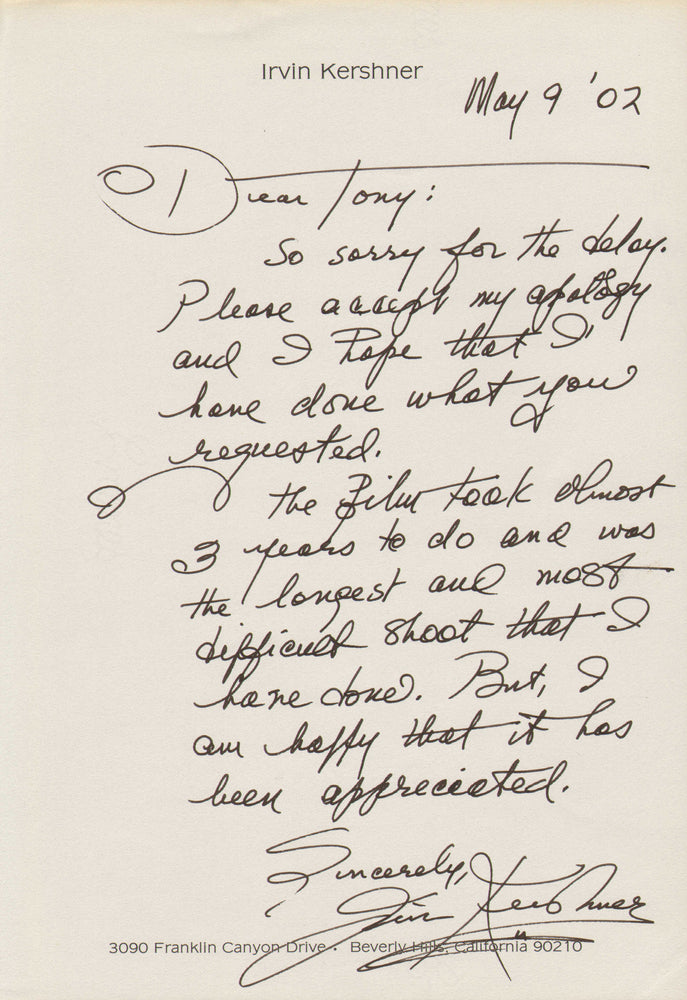 Irvin Kershner
May 9 '02
Dear Tony:
So sorry for the delay.
Please accept my apology
and I hope that I
have done what you
requested.
The film took almost
3 years to do and was
the longest and most
difficult shoot that I
have done. But, I
am happy that it has
been appreciated.
Sincerely,
Irvin Kershner
3090 Franklin Canyon Drive · Beverly Hills, California 90210